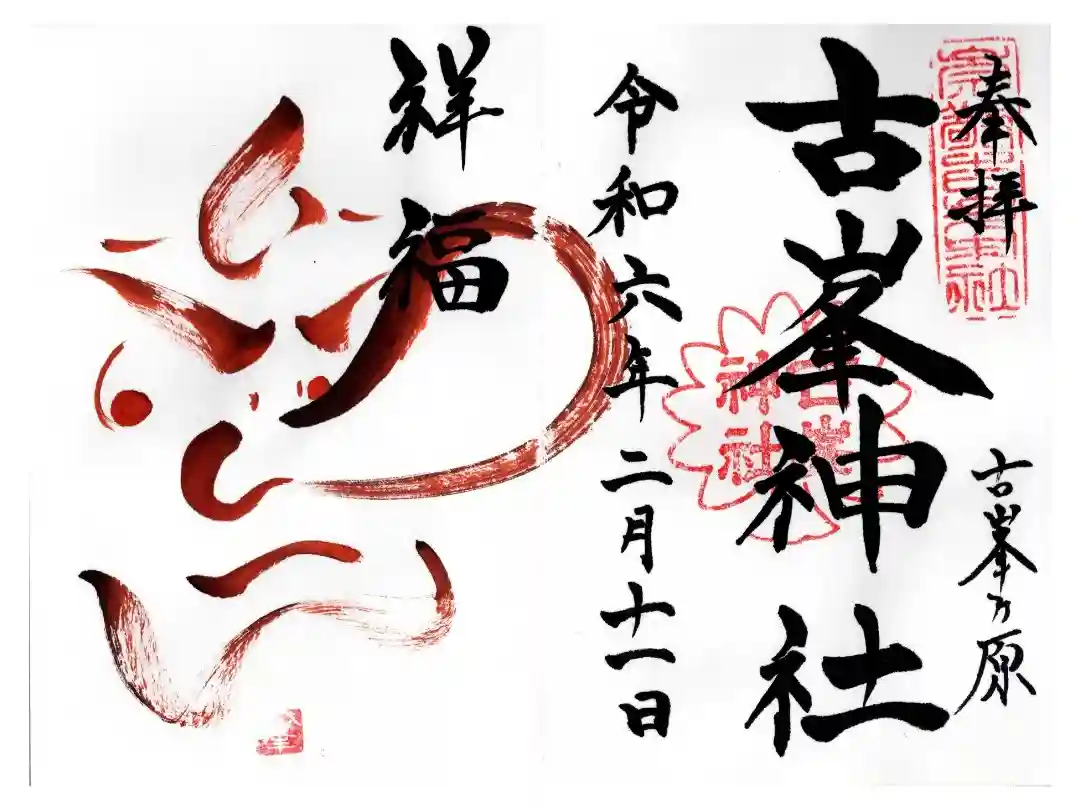 奉拝
古峯ヶ原
古峯神社
古峯神社
令和六年二月十一日
祥福